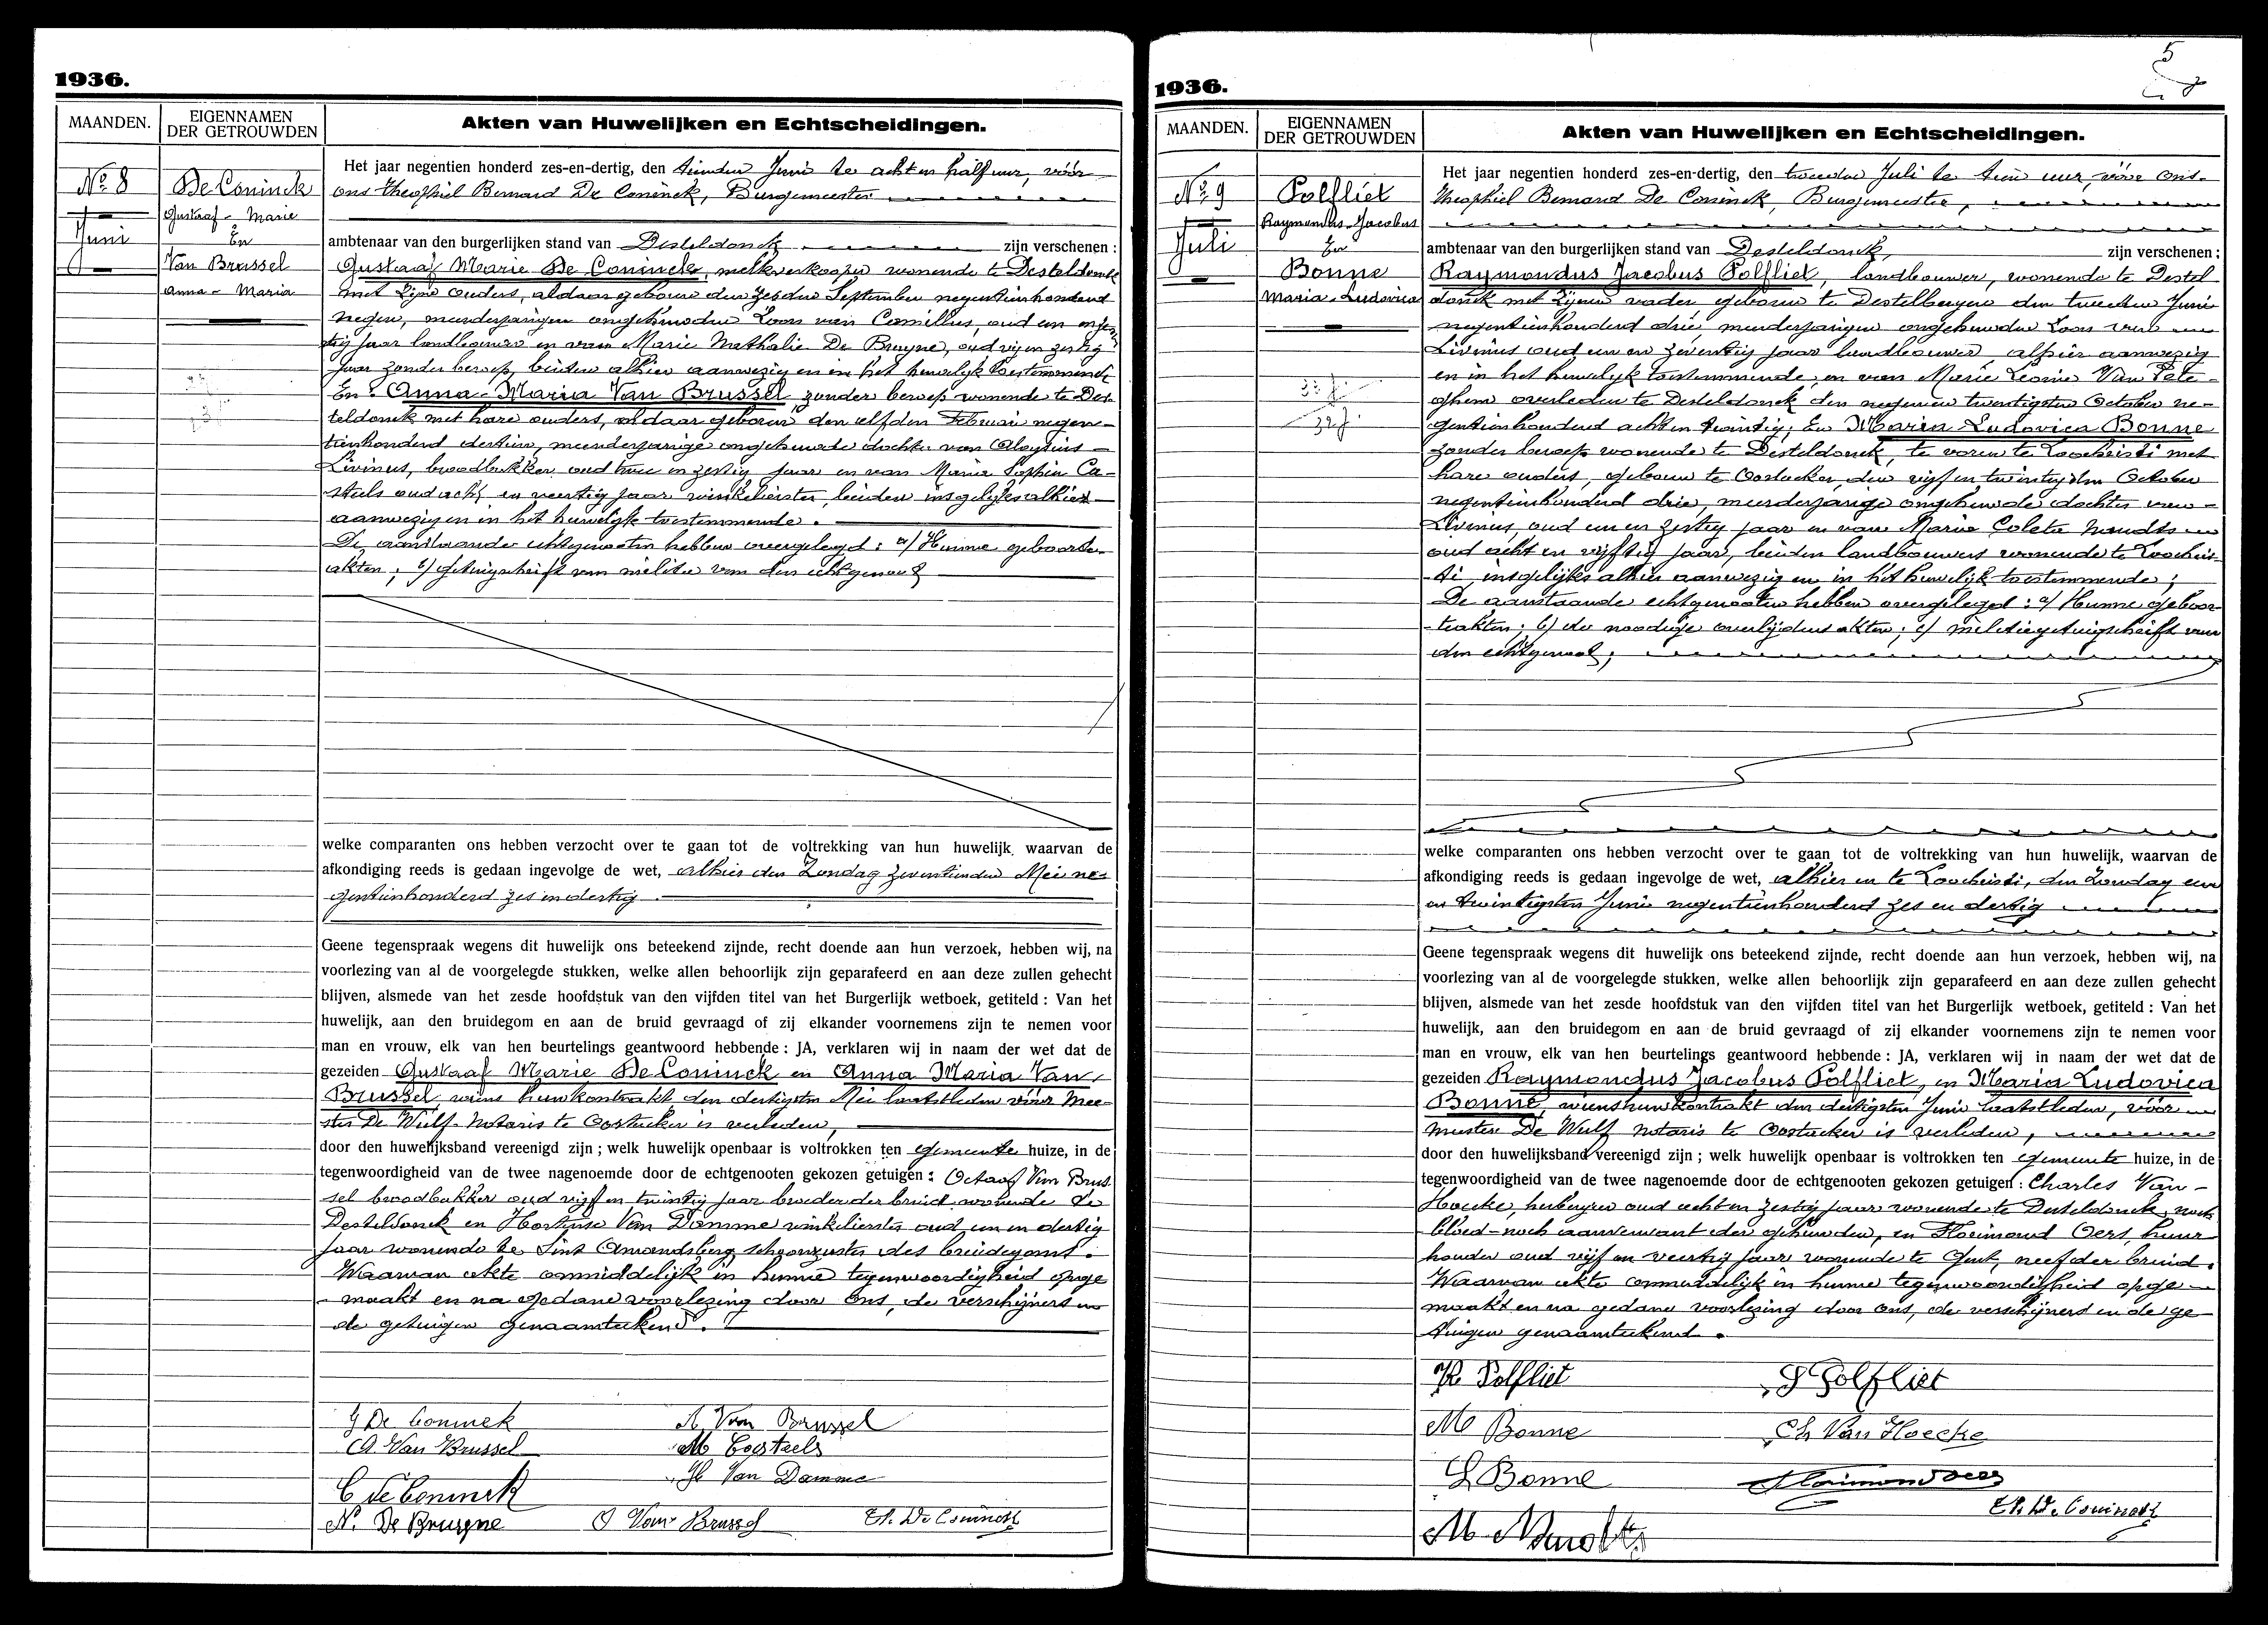 1936.
MAANDEN.
EIGENNAMEN
DER GETROUWDEN
Akten van Huwelijken en Echtscheidingen.
No 8
Juni
De Coninck
Gustaaf-Marie
En
Van Brussel
Anna-Maria
Het jaar negentien honderd zes-en-dertig, den tienden Juni te acht en half uur, vóór
ons Theophiel Bernard De Coninck, Burgemeester
ambtenaar van den burgerlijken stand van Desteldonck zijn verschenen :
Gustaaf Marie De Coninck, melkverkooper wonende te Desteldonck
met zijne ouders, aldaar geboren den zesden September negentienhonderd
negen, meerderjarigen ongehuwden zoon van Camillus, oud een en
tig jaar landbouwer en van Marie Nathalie De Bruyne, oud vijf en zestig
jaar zonder beroep, beiden alhier aanwezig en in het huwelijk toestemmende
En: Anna-Maria Van Brussel zonder beroep wonende te Des-
teldonck met hare ouders, aldaar geboren den elfden Februari negen-
tienhonderd dertien, meerderjarige ongehuwde dochter van Aloysius
Livinus, broodbakker oud twee en zestig jaar en van Maria Sophia Ca-
steels oud acht en veertig jaar winkelierster, beiden insgelijks alhier
aanwezig en in het huwelijk toestemmende.
De aanstaande echtgenooten hebben overgelegd : a/ Hunne geboorte-
akten ; b/ getuigschrift van militie van den echtgenoot
welke comparanten ons hebben verzocht over te gaan tot de voltrekking van hun huwelijk, waarvan de
afkondiging reeds is gedaan ingevolge de wet, alhier den Zondag zeventienden Mei ne-
gentienhonderd zes en dertig.
Geene tegenspraak wegens dit huwelijk ons beteekend zijnde, recht doende aan hun verzoek, hebben wij, na
voorlezing van al de voorgelegde stukken, welke allen behoorlijk zijn geparafeerd en aan deze zullen gehecht
blijven, alsmede van het zesde hoofdstuk van den vijfden titel van het Burgerlijk wetboek, getiteld : Van het
huwelijk, aan den bruidegom en aan de bruid gevraagd of zij elkander voornemens zijn te nemen voor
man en vrouw, elk van hen beurtelings geantwoord hebbende : JA, verklaren wij in naam der wet dat de
gezeiden Gustaaf Marie De Coninck en Anna Maria Van
Brussel, wiens huwkontrakt den dertigsten Mei laatstleden vóór Mee-
ster De Wulf Notaris te Oostacker is verleden,
door den huwelijksband vereenigd zijn ; welk huwelijk openbaar is voltrokken ten gemeente huize, in de
tegenwoordigheid van de twee nagenoemde door de echtgenooten gekozen getuigen : Octaaf Van Brus
sel broodbakker oud vijf en twintig jaar broeder der bruid wonende te
Desteldonck en Hortense Van Damme winkelierster oud een en dertig
jaar wonende te Sint Amandsberg schoonzuster des bruidegoms.
Waarvan akte onmiddelijk in hunne tegenwoordigheid opge
maakt en na gedane voorlezing door ons, de verschijners en
de getuigen genaamteekend.
G De Coninck
A Van Brussel
A Van Brussel
M Casteels
C De Coninck
H Van Damme
N. De Bruyne
O Van Brussel
Th. De Coninck
5
1936.
MAANDEN.
EIGENNAMEN
DER GETROUWDEN
Akten van Huwelijken en Echtscheidingen.
No 9
Juli
Polfliet
Raymondus-Jacobus
En
Bonne
Maria-Ludovica
33 j.
32 j.
Het jaar negentien honderd zes-en-dertig, den tweeden Juli te tien uur, vóór ons
Theophiel Bernard De Coninck, Burgemeester,
ambtenaar van den burgerlijken stand van Desteldonck, zijn verschenen :
Raymondus Jacobus Polfliet, landbouwer, wonende te Destel
donck met zijnen vader, geboren te Destelbergen den tweeden Juni
negentienhonderd drie, meerderjarigen ongehuwden zoon van
Livinus oud een en zeventig jaar landbouwer, alhier aanwezig
en in het huwelijk toestemmende, en van Marie Leonie Van Pete-
ghem overleden te Desteldonck den negen en twintigsten October ne-
gentienhonderd acht en twintig; En Maria Ludovica Bonne
zonder beroep wonende te Desteldonck, te voren te Loochristi met
hare ouders, geboren te Oostacker den vijf en twintigsten October
negentienhonderd drie, meerderjarige ongehuwde dochter van
Livinus, oud een en zestig jaar en van Marie Coleta Naudts
oud acht en vijftig jaar, beiden landbouwers wonende te Loochris-
ti, insgelijks alhier aanwezig en in het huwelijk toestemmende ;
De aanstaande echtgenooten hebben overgelegd : a/ Hunne geboor-
teakten ; b/ de noodige overlijdensakten ; c/ militiegetuigschrift van
den echtgenoot ;
welke comparanten ons hebben verzocht over te gaan tot de voltrekking van hun huwelijk, waarvan de
afkondiging reeds is gedaan ingevolge de wet, alhier en te Loochristi, den Zondag een
en twintigsten Juni negentienhonderd zes en dertig
Geene tegenspraak wegens dit huwelijk ons beteekend zijnde, recht doende aan hun verzoek, hebben wij, na
voorlezing van al de voorgelegde stukken, welke allen behoorlijk zijn geparafeerd en aan deze zullen gehecht
blijven, alsmede van het zesde hoofdstuk van den vijfden titel van het Burgerlijk wetboek, getiteld : Van het
huwelijk, aan den bruidegom en aan de bruid gevraagd of zij elkander voornemens zijn te nemen voor
man en vrouw, elk van hen beurtelings geantwoord hebbende : JA, verklaren wij in naam der wet dat de
gezeiden Raymondus Jacobus Polfliet, en Maria Ludovica
Bonne, wiens huwkontrakt den dertigsten Juni laatstleden, vóór
meester De Wulf notaris te Oostacker is verleden,
door den huwelijksband vereenigd zijn ; welk huwelijk openbaar is voltrokken ten gemeente huize, in de
tegenwoordigheid van de twee nagenoemde door de echtgenooten gekozen getuigen : Charles Van
Hoecke, herbergier oud acht en zestig jaar wonende te Desteldonck, noch
bloed-noch aanverwant der gehuwden, en Florimond Oers, huur
houder oud vijf en veertig jaar wonende te Gent, neef der bruid.
Waarvan akte onmiddelijk in hunne tegenwoordigheid opge
maakt en na gedane voorlezing door ons, de verschijners en de ge
tuigen genaamteekend.
R Polfliet
L Polfliet
M Bonne
Ch Van Hoecke
L Bonne
Florimond Oers
Th. De Coninck
M Naudts